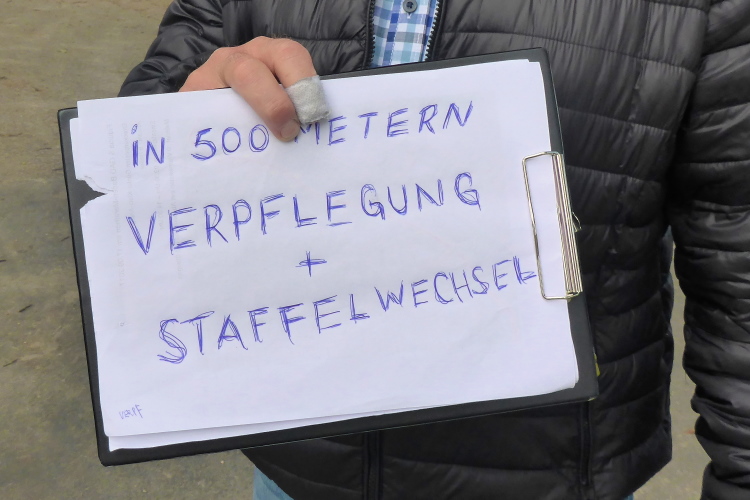 iN 500 METERN
VERPFLEGUNG
+
STAFFELWECHSEL